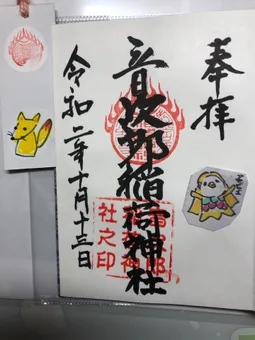 奉拝
音次郎稲荷神社
令和二年十月十三日
社之印